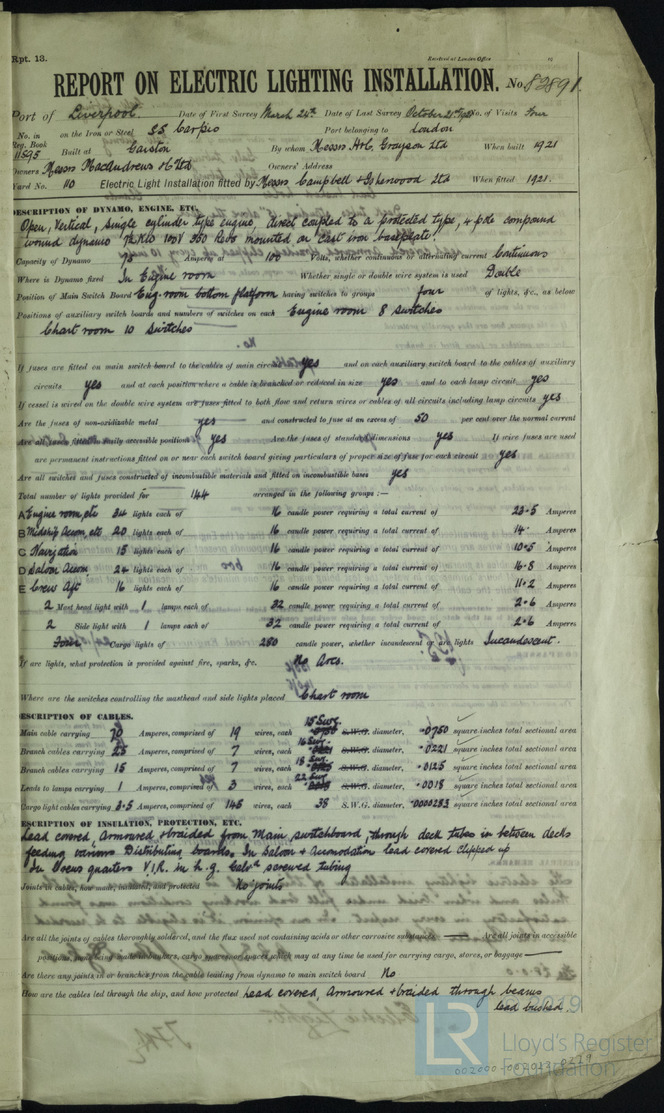 Rpt. 13.
Received at London Office
REPORT ON ELECTRIC LIGHTING INSTALLATION. No. 82891
Port of Liverpool. Date of First Survey March 24th Date of Last Survey October 21st 1921 No. of Visits Four
No. in on the Iron or Steel SS Carpio Port belonging to London
Reg. Book
11595 Built at Garston By whom Messrs H&C. Grayson Ltd When built 1921
Owners Messrs MacAndrews & Co Ltd Owners' Address
Yard No. 110 Electric Light Installation fitted by Messrs Campbell & Isherwood Ltd When fitted 1921.
DESCRIPTION OF DYNAMO, ENGINE, ETC.
Open, Vertical, single cylinder type engine, direct coupled to a protected type, 4 pole compound
wound dynamo 100V 350 Revs mounted on cast iron baseplate.
Capacity of Dynamo Amperes at 100 Volts, whether continuous or alternating current Continuous
Where is Dynamo fixed In Engine room Whether single or double wire system is used Double
Position of Main Switch Board Eng. room bottom platform having switches to groups four of lights, &c., as below
Positions of auxiliary switch boards and numbers of switches on each Engine room 8 switches
Chart room 10 Switches
If fuses are fitted on main switch board to the cables of main circuit yes and on each auxiliary switch board to the cables of auxiliary
circuits yes and at each position where a cable is branched or reduced in size yes and to each lamp circuit yes
If vessel is wired on the double wire system are fuses fitted to both flow and return wires or cables of all circuits including lamp circuits yes
Are the fuses of non-oxidizable metal yes and constructed to fuse at an excess of 50 per cent over the normal current
Are all fuses fitted in easily accessible positions yes Are the fuses of standard dimensions yes If wire fuses are used
are permanent instructions fitted on or near each switch board giving particulars of proper size of fuse for each circuit yes
Are all switches and fuses constructed of incombustible materials and fitted on incombustible bases yes
Total number of lights provided for 144 arranged in the following groups :—
A Engine room, etc 34 lights each of 16 candle power requiring a total current of 23.5 Amperes
B Midship Accom, etc 20 lights each of 16 candle power requiring a total current of 14. Amperes
C Navigation 15 lights each of 16 candle power requiring a total current of 10.5 Amperes
D Saloon Accom. 24 lights each of 16 candle power requiring a total current of 16.8 Amperes
E Crew Aft 16 lights each of 16 candle power requiring a total current of 11.2 Amperes
2 Mast head light with 1 lamps each of 32 candle power requiring a total current of 2.6 Amperes
2 Side light with 1 lamps each of 32 candle power requiring a total current of 2.6 Amperes
Four Cargo lights of 280 candle power, whether incandescent or arc lights Incandescent.
If arc lights, what protection is provided against fire, sparks, &c. No Arcs.
Where are the switches controlling the masthead and side lights placed Chart room
DESCRIPTION OF CABLES.
Main cable carrying 70 Amperes, comprised of 19 wires, each 15 Swg. S.W.G. diameter, .0750 square inches total sectional area
Branch cables carrying 25 Amperes, comprised of 7 wires, each 16 Swg. S.W.G. diameter, .0221 square inches total sectional area
Branch cables carrying 15 Amperes, comprised of 7 wires, each 18 Swg. S.W.G. diameter, .0125 square inches total sectional area
Leads to lamps carrying 1 Amperes, comprised of 3 wires, each 22 Swg S.W.G. diameter, .0018 square inches total sectional area
Cargo light cables carrying 3.5 Amperes, comprised of 145 wires, each 38 S.W.G. diameter, .0000283 square inches total sectional area
DESCRIPTION OF INSULATION, PROTECTION, ETC.
Lead covered, Armoured & braided from Main switchboard, through deck tubes in between decks
feeding various Distributing boards. In Saloon & Accomodation lead covered clipped up
In Crews quarters V.I.R. in h.g. Galvd screwed tubing
Joints in cables, how made, insulated, and protected No joints
Are all the joints of cables thoroughly soldered, and the flux used not containing acids or other corrosive substances — Are all joints in accessible
positions, none being made in bunkers, cargo spaces, or spaces which may at any time be used for carrying cargo, stores, or baggage —
Are there any joints in or branches from the cable leading from dynamo to main switch board No
How are the cables led through the ship, and how protected Lead covered, Armoured & braided through beams
lead bushed.
© 2019
LR
Lloyd's Register
Foundation